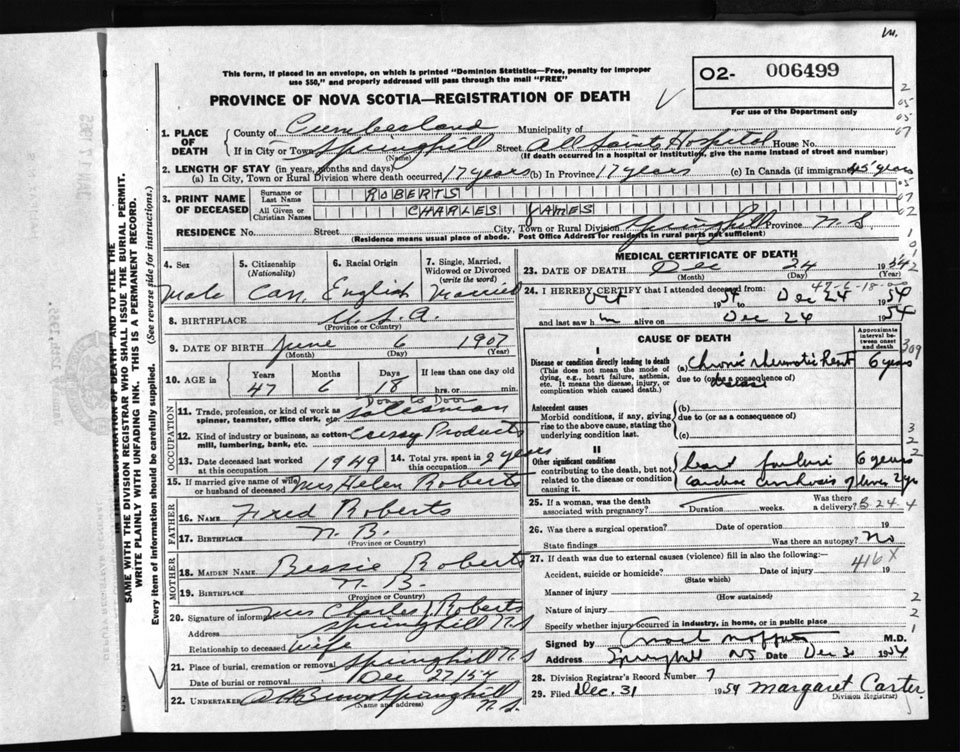 This form, if placed in an envelope, on which is printed "Dominion Statistics—Free, penalty for improper
use $50," and properly addressed will pass through the mail "FREE"
PROVINCE OF NOVA SCOTIA—REGISTRATION OF DEATH
O2- 006499
For use of the Department only
1. PLACE OF DEATH
County of Cumberland Municipality of
If in City or Town Springhill Street All Saints Hospital House No.
(Name) (If death occurred in a hospital or institution, give the name instead of street and number)
2. LENGTH OF STAY (in years, months and days)
(a) In City, Town or Rural Division where death occurred 17 years (b) In Province 17 years (c) In Canada (if immigrant) 45 years
3. PRINT NAME OF DECEASED
Surname or Last Name ROBERTS
All Given or Christian Names CHARLES JAMES
RESIDENCE No. Street City, Town or Rural Division Springhill Province N.S.
(Residence means usual place of abode. Post Office Address for residents in rural parts not sufficient)
4. Sex Male
5. Citizenship (Nationality) Can.
6. Racial Origin English
7. Single, Married, Widowed or Divorced (write the word) Married
8. BIRTHPLACE U.S.A.
(Province or Country)
9. DATE OF BIRTH June 6 1907
(Month) (Day) (Year)
10. AGE in Years 47 Months 6 Days 18 If less than one day old hrs. or min.
OCCUPATION
11. Trade, profession, or kind of work as spinner, teamster, office clerk, etc. Door to Door Salesman
12. Kind of industry or business, as cotton-mill, lumbering, bank, etc. Products
13. Date deceased last worked at this occupation 1949
14. Total yrs. spent in this occupation 2 years
15. If married give name of wife or husband of deceased Mrs Helen Roberts
FATHER
16. NAME Fred Roberts
17. BIRTHPLACE N.B.
(Province or Country)
MOTHER
18. MAIDEN NAME Bessie Roberts
19. BIRTHPLACE N.B.
(Province or Country)
20. Signature of informant Mrs Charles J Roberts
Address Springhill N.S
Relationship to deceased wife
21. Place of burial, cremation or removal Springhill N.S
Date of burial or removal Dec 27/54
22. UNDERTAKER Brown Springhill N.S.
(Name and address)
MEDICAL CERTIFICATE OF DEATH
23. DATE OF DEATH Dec 24 1954
(Month) (Day) (Year)
47-6-18
24. I HEREBY CERTIFY that I attended deceased from:
Oct 1954 to Dec 24 1954
and last saw him alive on Dec 24 1954
CAUSE OF DEATH
Approximate interval between onset and death
I
Disease or condition directly leading to death
(This does not mean the mode of dying, e.g., heart failure, asthenia, etc. It means the disease, injury, or complication which caused death.)
(a) Chronic rheumatic heart 6 years
due to (or as a consequence of)
Antecedent causes
Morbid conditions, if any, giving rise to the above cause, stating the underlying condition last.
(b)
due to (or as a consequence of)
(c)
II
Other significant conditions
contributing to the death, but not related to the disease or condition causing it.
heart failure 6 years
cardiac cirrhosis of liver 2 yrs
25. If a woman, was the death associated with pregnancy? Duration weeks. Was there a delivery?
26. Was there a surgical operation? Date of operation 19
State findings Was there an autopsy? No
27. If death was due to external causes (violence) fill in also the following:—
Accident, suicide or homicide? Date of injury 19
(State which)
416X
Manner of injury
(How sustained)
Nature of injury
Specify whether injury occurred in industry, in home, or in public place
Signed by M.D.
Address Springhill NS Date Dec 31 1954
28. Division Registrar's Record Number 7
29. Filed Dec. 31 1954 Margaret Carter
(Division Registrar)
SAME WITH THE DIVISION REGISTRAR WHO SHALL ISSUE THE BURIAL PERMIT.
WRITE PLAINLY WITH UNFADING INK. THIS IS A PERMANENT RECORD.
Every item of information should be carefully supplied. (See reverse side for instructions.)